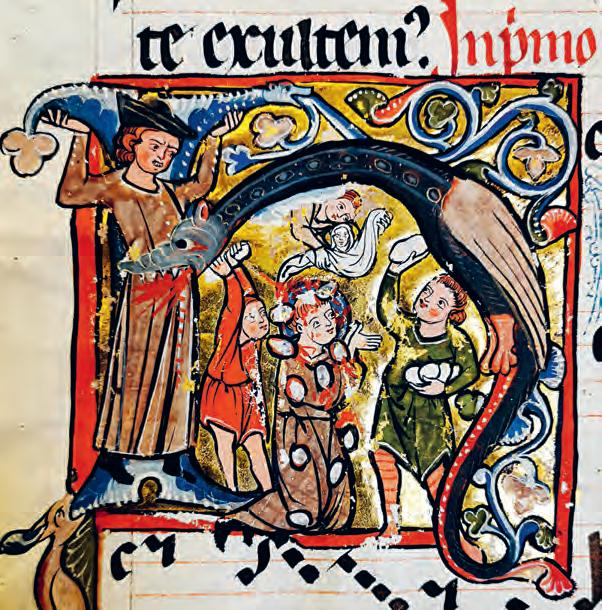 te exultem? In p̄mo